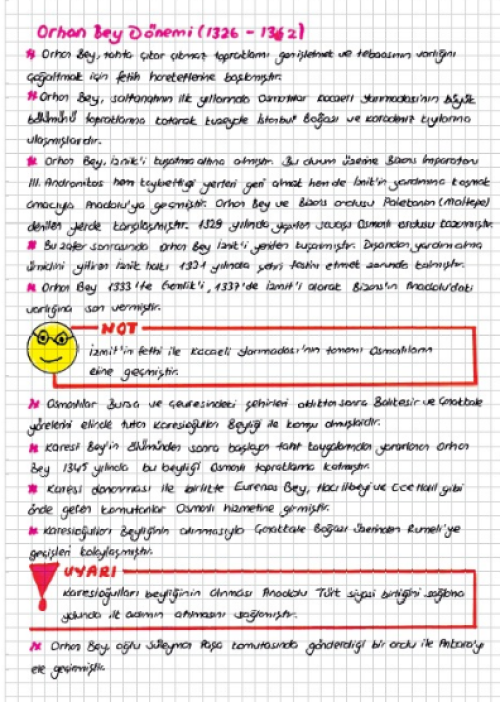 Orhan Bey Dönemi (1326 - 1362)
* Orhan Bey, tahta çıkar çıkmaz topraklarını genişletmek ve tebaasının varlığını
çoğaltmak için fetih hareketlerine başlamıştır.
* Orhan Bey, saltanatının ilk yıllarında Osmanlılar Kocaeli Yarımadası'nın büyük
bölümünü topraklarına katarak kuzeyde İstanbul Boğazı ve Karadeniz kıyılarına
ulaşmışlardır.
* Orhan Bey, İznik'i kuşatma altına almıştır. Bu durum üzerine Bizans İmparatoru
III. Andronikos hem kaybettiği yerleri geri almak hem de İznik'in yardımına koşmak
amacıyla Anadolu'ya geçmiştir. Orhan Bey ve Bizans ordusu Palekanon (Maltepe)
denilen yerde karşılaşmıştır. 1329 yılında yapılan savaşı Osmanlı ordusu kazanmıştır.
* Bu zafer sonrasında Orhan Bey İznik'i yeniden kuşatmıştır. Dışarıdan yardım alma
ümidini yitiren İznik halkı 1331 yılında şehri teslim etmek zorunda kalmıştır.
* Orhan Bey 1333'te Gemlik'i, 1337'de İzmit'i alarak Bizans'ın Anadolu'daki
varlığına son vermiştir.
NOT
İzmit'in fethi ile Kocaeli Yarımadası'nın tamamı Osmanlıların
eline geçmiştir.
* Osmanlılar Bursa ve çevresindeki şehirleri aldıktan sonra Balıkesir ve Çanakkale
yörelerini elinde tutan Karesioğulları Beyliği ile komşu olmuşlardır.
* Karesi Bey'in ölümünden sonra başlayan taht kavgalarından yararlanan Orhan
Bey 1345 yılında bu beyliği Osmanlı topraklarına katmıştır.
* Karesi donanması ile birlikte Evrenos Bey, Hacı İlbeyi ve Ece Halil gibi
önde gelen komutanlar Osmanlı hizmetine girmiştir.
* Karesioğulları Beyliğinin alınmasıyla Çanakkale Boğazı üzerinden Rumeli'ye
geçişleri kolaylaşmıştır.
UYARI
Karesioğulları beyliğinin alınması Anadolu Türk siyasi birliğini sağlama
yolunda ilk adımın atılmasını sağlamıştır.
* Orhan Bey, oğlu Süleyman Paşa komutasında gönderdiği bir ordu ile Ankara'yı
ele geçirmiştir.